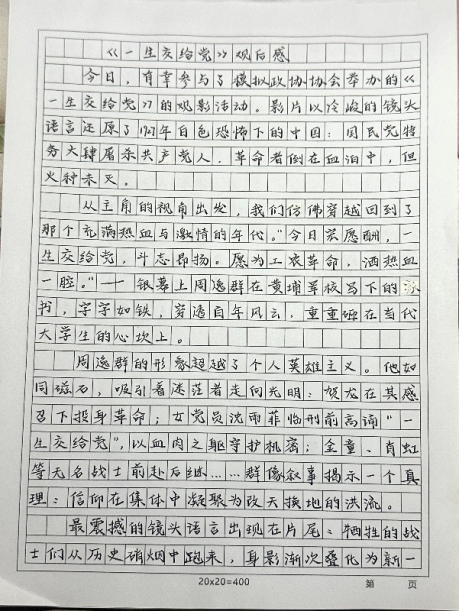 《一生交给党》观后感
今日，有幸参与了模拟政协协会举办的《
一生交给党》的观影活动。影片以冷峻的镜头
语言还原了1927年白色恐怖下的中国：国民党特
务大肆屠杀共产党人，革命者倒在血泊中，但
火种未灭。
从主角的视角出发，我们仿佛穿越回到了
那个充满热血与激情的年代。“今日宏愿酬，一
生交给党，斗志昂扬。愿为工农革命，洒热血
一腔。”——银幕上周逸群在黄埔军校写下的
书，字字如铁，穿透百年风云，重重砸在当代
大学生的心坎上。
周逸群的形象超越了个人英雄主义。他如
同磁石，吸引着迷茫者走向光明：贺龙在其感
召下投身革命；女党员沈雨菲临刑前高诵“一
生交给党”，以血肉之躯守护机密；金童、肖虹
等无名战士前赴后继……群像叙事揭示一个真
理：信仰在集体中凝聚为改天换地的洪流。
最震撼的镜头语言出现在片尾：牺牲的战
士们从历史硝烟中跑来，身影渐次叠化为新一
20×20=400 第 页